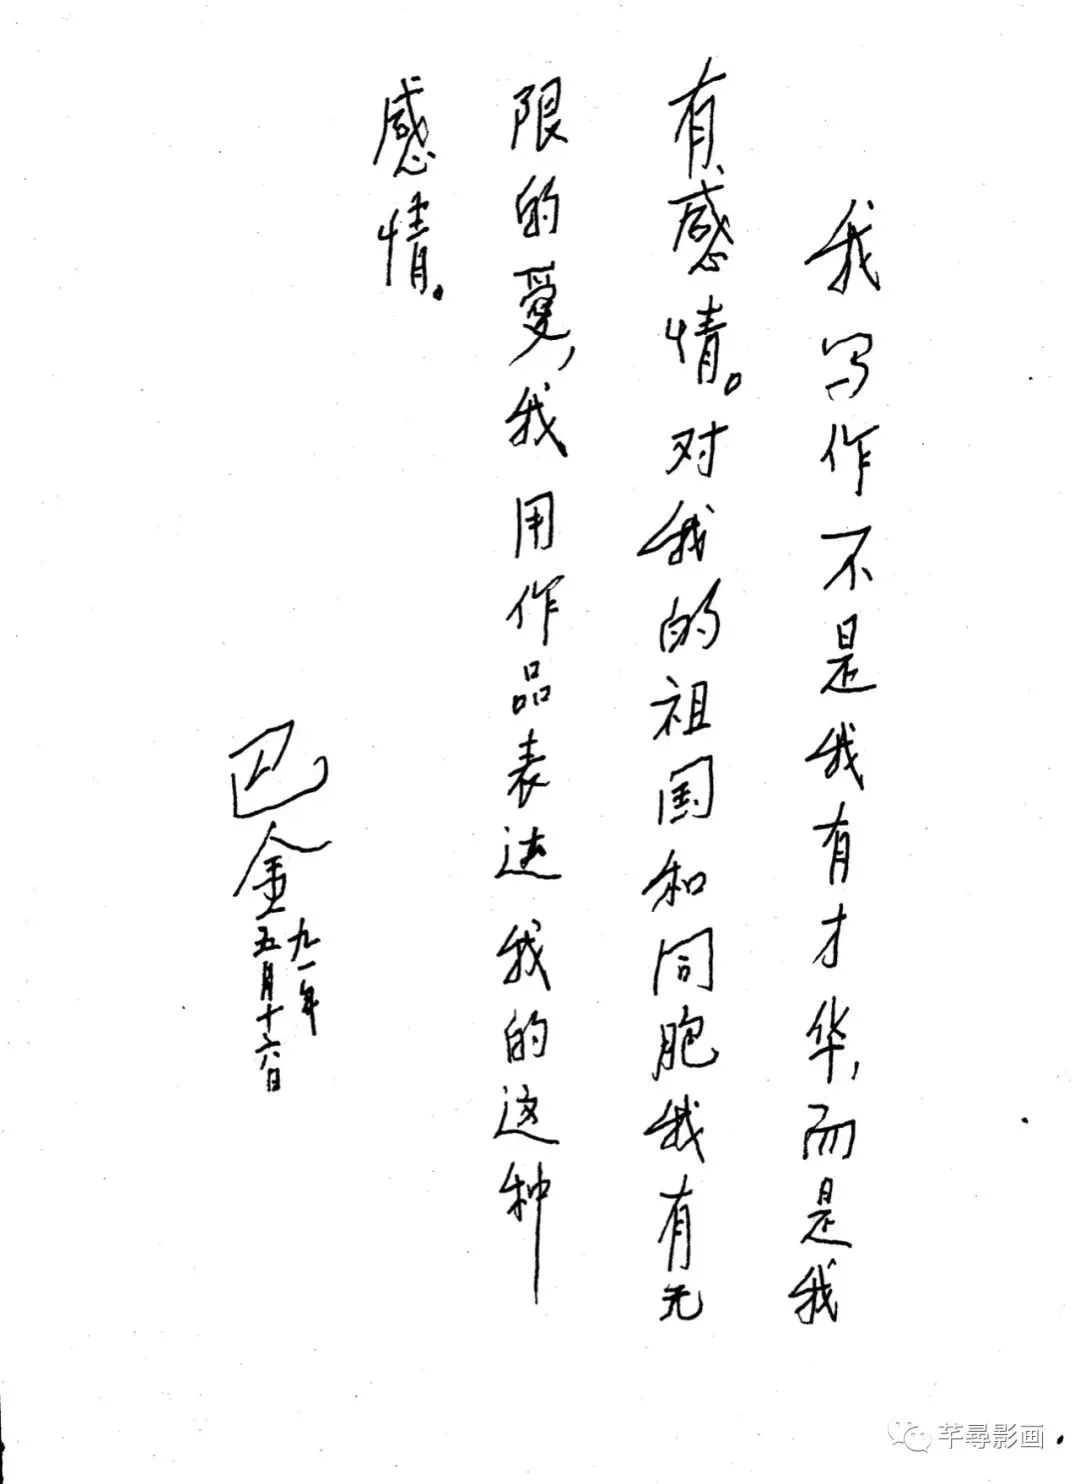 我写作不是我有才华,而是我
有感情。对我的祖国和同胞我有无
限的愛,我用作品表达我的这种
感情。
巴金
九一年
五月十六日
芊尋影画